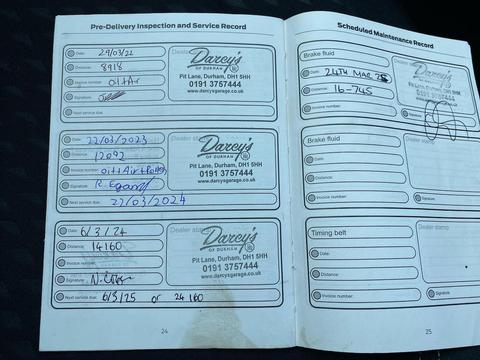 Pre-Delivery Inspection and Service Record
Date: 29/03/22
Distance: 8918
Invoice number: oil+Air
Signature:
Next service due:
Dealer stamp
Darcy's
OF DURHAM
Pit Lane, Durham, DH1 5HH
0191 3757444
www.darcysgarage.co.uk
Date: 22/03/2023
Distance: 12092
Invoice number: oil+Air+Pollen
Signature: R.
Next service due: 22/03/2024
Dealer stamp
Darcy's
OF DURHAM
Pit Lane, Durham, DH1 5HH
0191 3757444
www.darcysgarage.co.uk
Date: 6/3/24
Distance: 14160
Invoice number:
Signature: N.
Next service due: 6/3/25 or 24160
Dealer stamp
Darcy's
OF DURHAM
Pit Lane, Durham, DH1 5HH
0191 3757444
www.darcysgarage.co.uk
24
Scheduled Maintenance Record
Brake fluid
Date: 24TH MAR 25
Distance: 16-745
Invoice number:
Dealer stamp
Darcy's
OF DURHAM
Pit Lane, Durham, DH1 5HH
0191 3757444
www.darcysgarage.co.uk
Signature:
Brake fluid
Date:
Distance:
Invoice number:
Dealer stamp
Signature:
Timing belt
Date:
Distance:
Invoice number:
Dealer stamp
Signature:
25